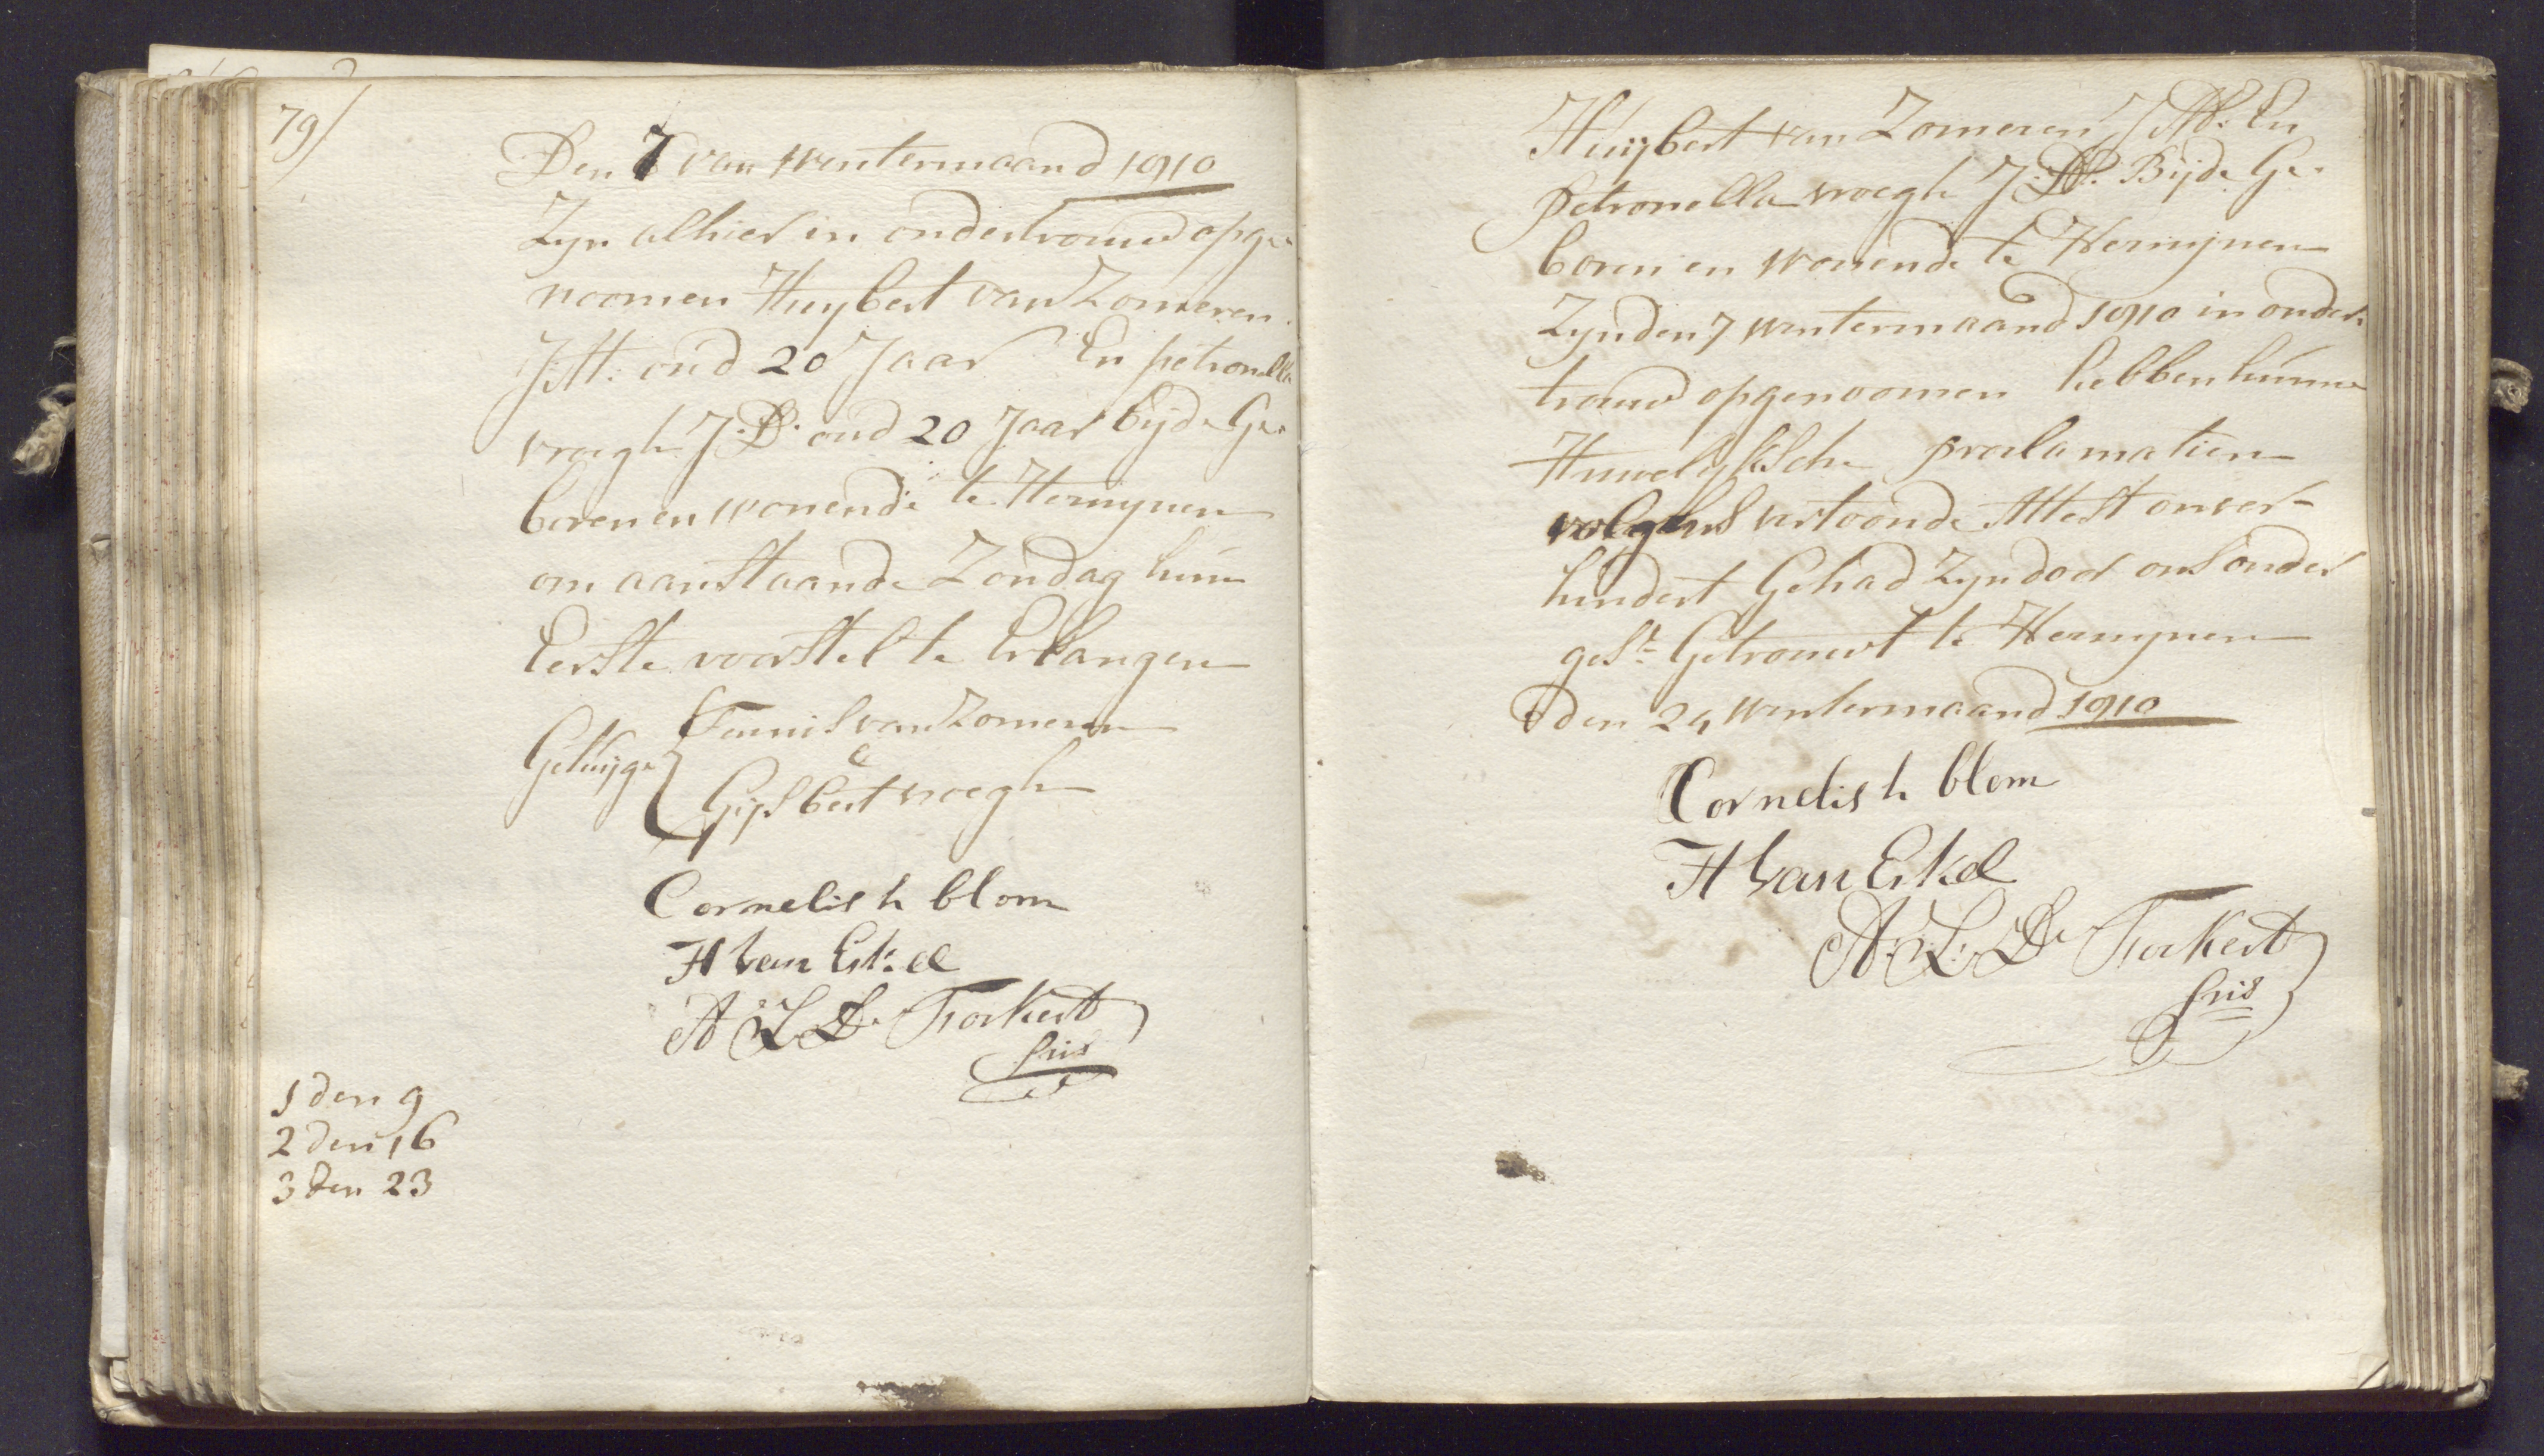 79)
Den 7 van wintermaand 1810
Zyn alhier in ondertrouwd opge-
noomen Huybert van Zomeren
J:M: oud 20 Jaar En petronella
vroegh J:D: oud 20 Jaar beyde Ge-
boren en wonende te Herwynen
om aanstaande Zondag hun
Eerste voorstel te Erlangen
Getuyge { Teunis van Zomeren
&
Gysbert vroegh
Cornelis h blom
H Van Eskel
A: L: D. Torkert
sris
1 den 9
2 den 16
3 den 23
Huijbert van Zomeren J:M: En
petronella vroegh J:D: Bijde Ge-
boren en wonende te Herwynen
Zyn den 7 wintermaand 1810 in onder-
trouwd opgenoomen hebben hunne
Huwelyksche proclamatien
volgens vertoonde Attest onver-
hindert Gehad Zyn door ons onder
gest: Getrouwt te Herwynen
den 24 wintermaand 1810
Cornelis h blom
H Van Eskel
A: L: D. Torkert
sris